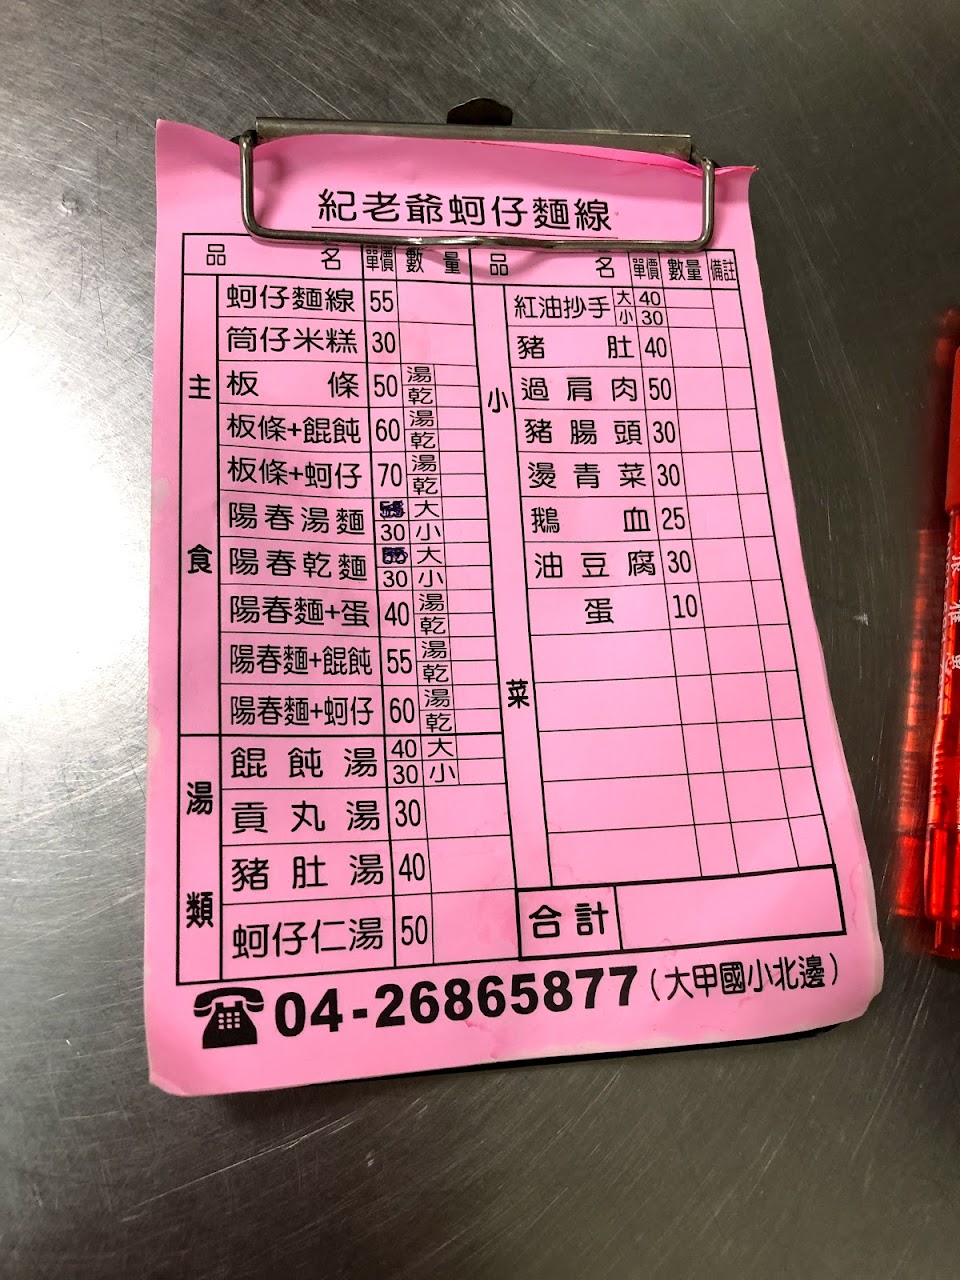 紀老爺蚵仔麵線
品 名 單價 數 量 品 名 單價 數量 備註
主食
蚵仔麵線 55
筒仔米糕 30
板條 50 湯 乾
板條+餛飩 60 湯 乾
板條+蚵仔 70 湯 乾
陽春湯麵 大 30 小
陽春乾麵 大 30 小
陽春麵+蛋 40 湯 乾
陽春麵+餛飩 55 湯 乾
陽春麵+蚵仔 60 湯 乾
湯類
餛飩湯 40 大 30 小
貢丸湯 30
豬肚湯 40
蚵仔仁湯 50
小菜
紅油抄手 大 40 小 30
豬肚 40
過肩肉 50
豬腸頭 30
燙青菜 30
鵝血 25
油豆腐 30
蛋 10
合計
04-26865877(大甲國小北邊)